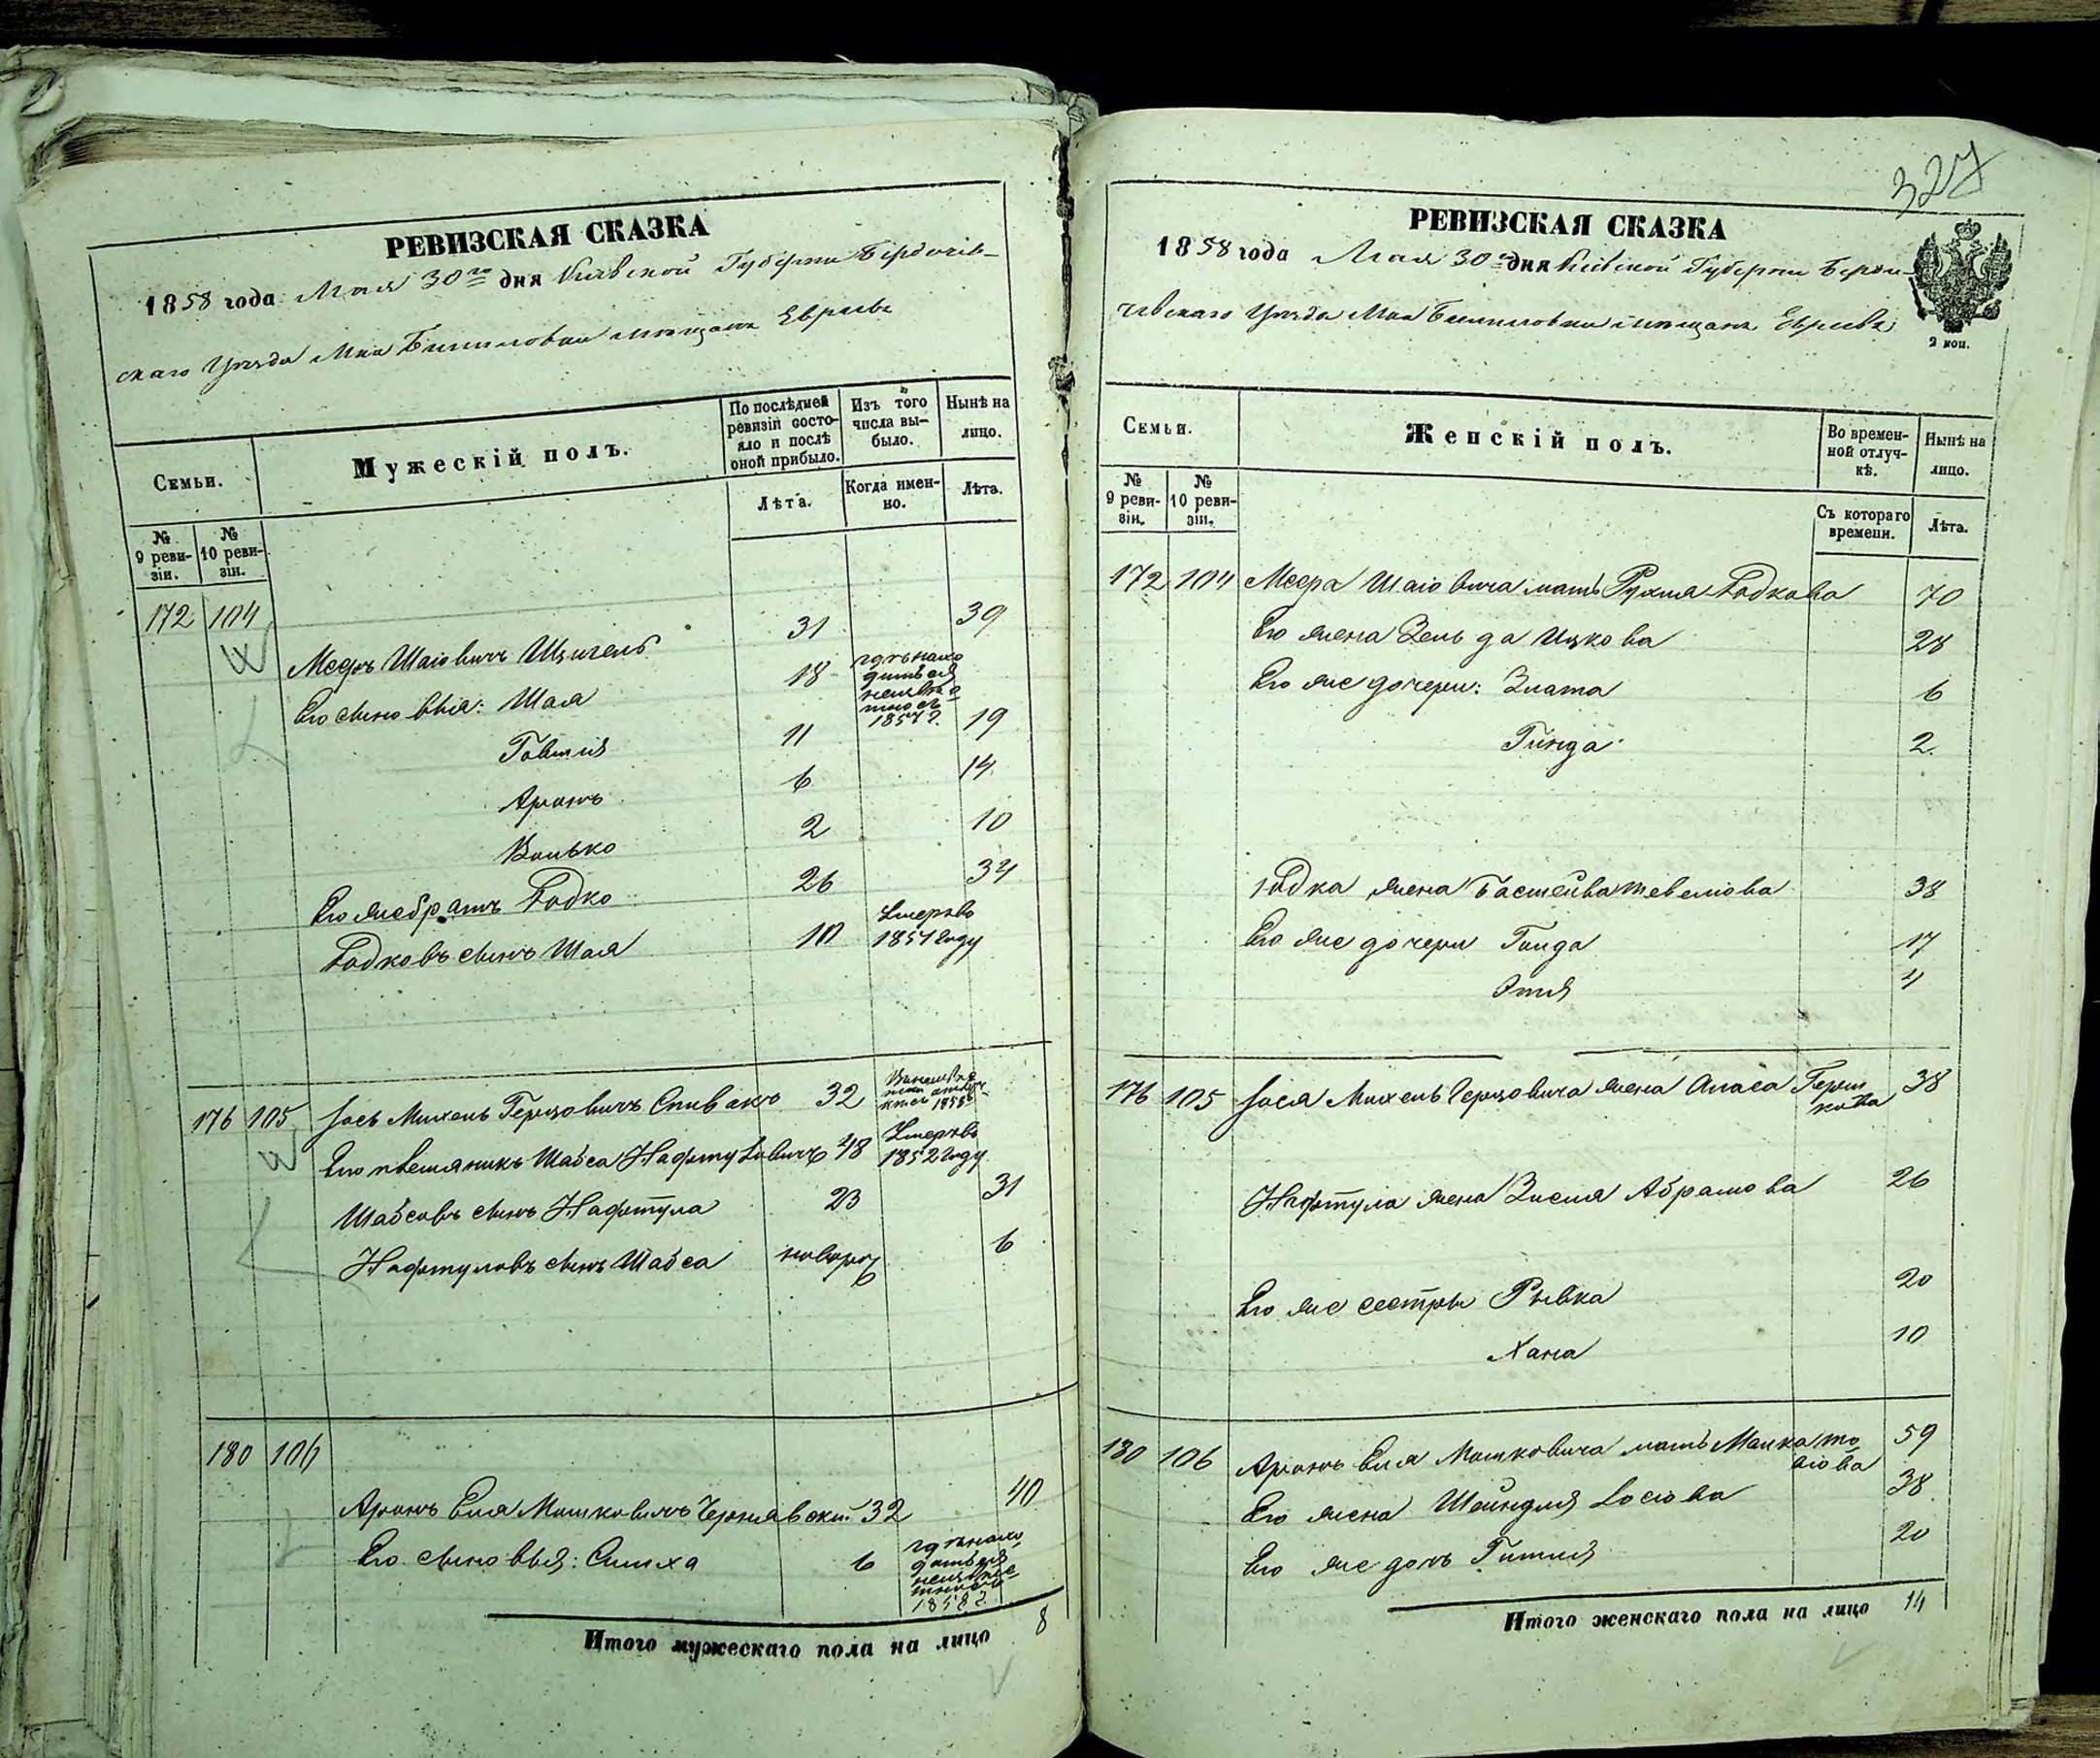 РЕВИЗСКАЯ СКАЗКА
1858 года Мая 30го дня Киевской Губернии Бердичев-
скаго Уѣзда Мка Билиловки мѣщанъ Евреевъ
Семьи.
Мужескій полъ.
По послѣдней ревизіи состояло и послѣ оной прибыло.
Изъ того числа выбыло.
Нынѣ на лицо.
№ 9 ревизіи.
№ 10 ревизіи.
Лѣта.
Когда именно.
Лѣта.
172 104
Мееръ Шаіовичъ 31 39
Его сыновья: Шая 18 гдѣ находиться неизвѣстно съ 1857 г.
11 19
Аронъ 6 14
Волько 2 10
Его же братъ Іодко 26 34
Іодковъ сынъ Шая 10 Умеръ въ 1857 году
176 105 Іось Михель Герцовичъ Спивакъ 32
Его племяникъ Шабса Нафтуловичъ 48 Умеръ въ 1852 году
Шабсовъ сынъ Нафтула 23 31
Нафтуловъ сынъ Шабса новорож 6
180 106
Аронъ Еля Мошковичъ Чернявски 32 40
Его сыновья: Симха 6 гдѣ находиться неизвѣстно съ 1858 г.
Итого мужескаго пола на лицо 8
327
РЕВИЗСКАЯ СКАЗКА
1858 года Мая 30го дня Киевской Губернии Берди-
чевскаго Уѣзда Мка Билиловки мѣщанъ Евреевъ
2 коп.
Семьи.
Женскій полъ.
Во временной отлучкѣ.
Нынѣ на лицо.
№ 9 ревизіи.
№ 10 ревизіи.
Съ котораго времени.
Лѣта.
172 104 Меера Шаіовича мать Рухля Іодкова 70
Его жена Зельда Ицкова 28
Его же дочери: Злата 6
Гинда 2
Іодка жена Бастейва Тевелова 38
Его же дочери Гинда 17
Этля 4
176 105 Іося Михель Герцовича жена Аласа Гершкова 38
Нафтула жена Зисля Абрамова 26
Его же сестры Рывка 20
Хана 10
180 106 Аронъ Еля Мошковича мать Малка 59
Его жена Шейндля Іосіова 38
Его же дочь Гитля 20
Итого женскаго пола на лицо 14